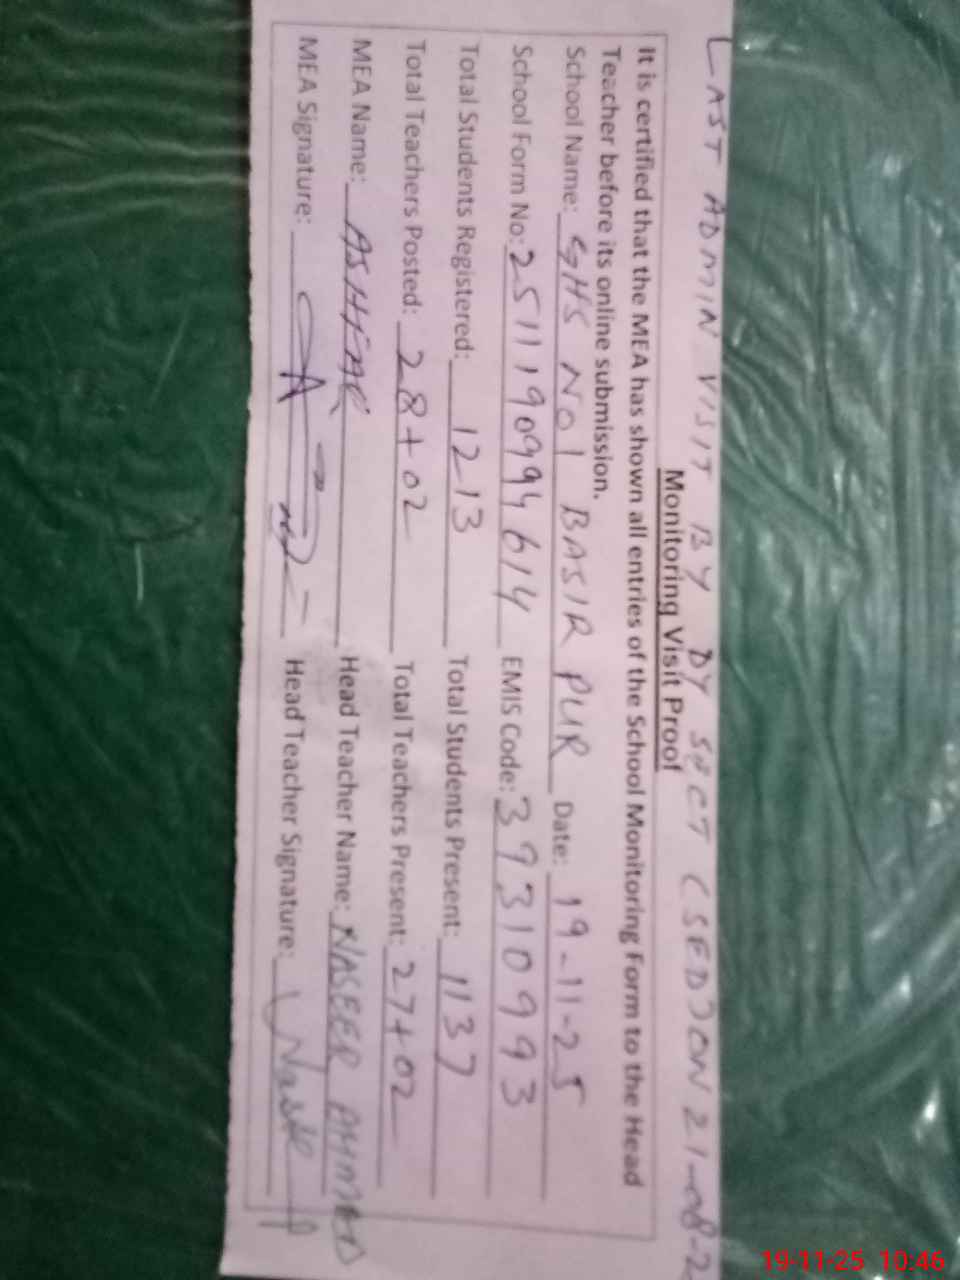 LAST ADMIN VISIT BY DY SECT (SED) ON 21-08-2
Monitoring Visit Proof
It is certified that the MEA has shown all entries of the School Monitoring Form to the Head
Teacher before its online submission.
School Name: GHS NO 1 BASIR PUR Date: 19-11-25
School Form No: 2511190994614 EMIS Code: 39310993
Total Students Registered: 1213 Total Students Present: 1137
Total Teachers Posted: 28+02 Total Teachers Present: 27+02
MEA Name: ASHFAR Head Teacher Name: NASEER AHMED
MEA Signature: Head Teacher Signature:
19-11-25 10:46